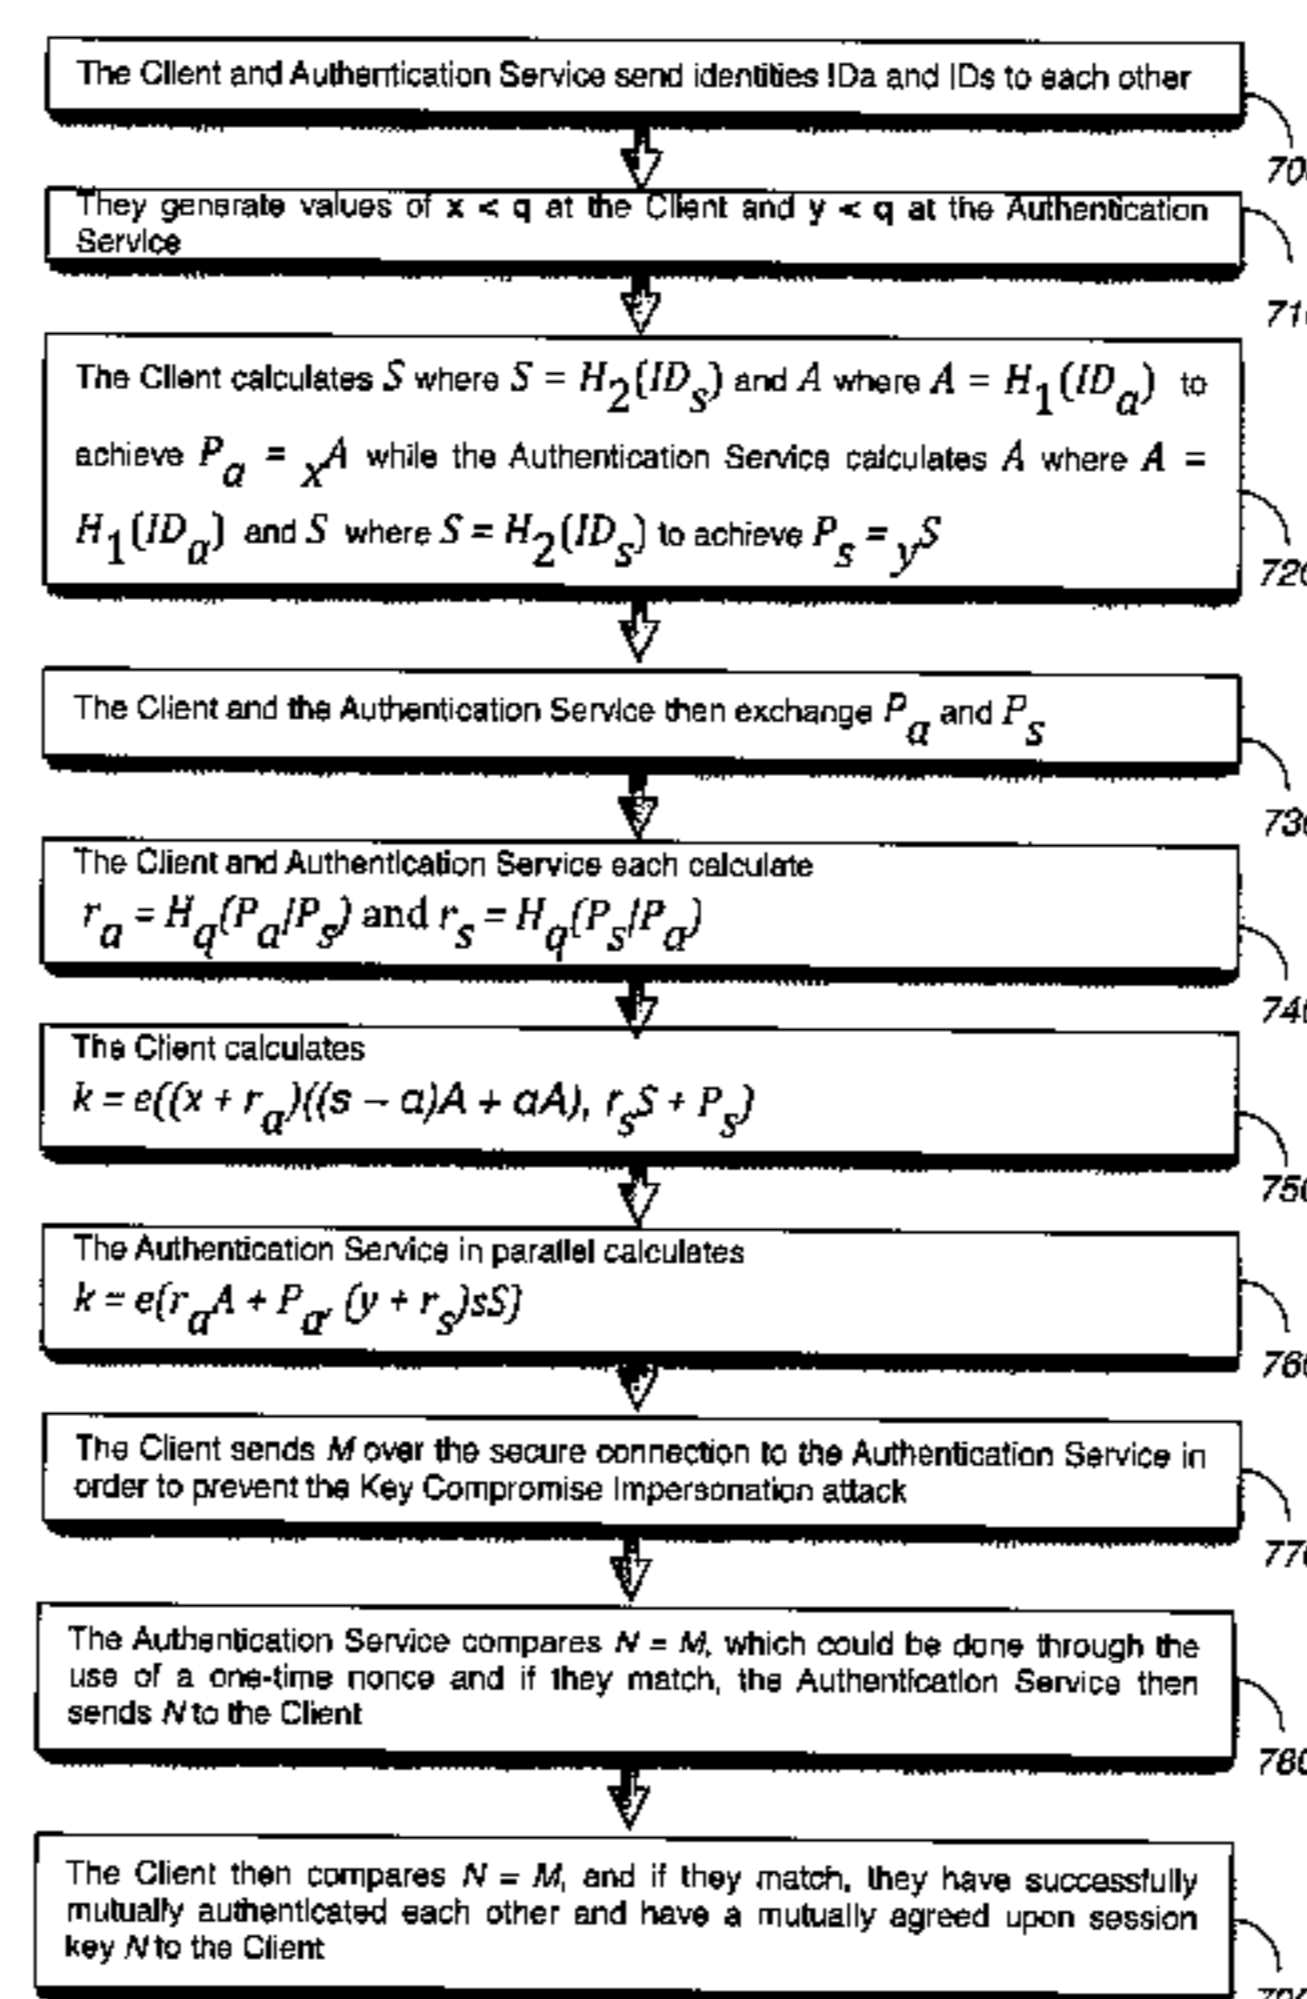 The Client and Authentication Service send identities IDa and IDs to each other
70
They generate values of x < q at the Client and y < q at the Authentication
Service
71
The Client calculates S where S = H2(IDs) and A where A = H1(IDa) to
achieve Pa = xA while the Authentication Service calculates A where A =
H1(IDa) and S where S = H2(IDs) to achieve Ps = yS
720
The Client and the Authentication Service then exchange Pa and Ps
730
The Client and Authentication Service each calculate
ra = Hq(Pa/Ps) and rs = Hq(Ps/Pa)
740
The Client calculates
k = e((x + ra)((s – a)A + aA), rsS + Ps)
750
The Authentication Service in parallel calculates
k = e(raA + Pa, (y + rs)sS)
760
The Client sends M over the secure connection to the Authentication Service in
order to prevent the Key Compromise Impersonation attack
770
The Authentication Service compares N = M, which could be done through the
use of a one-time nonce and if they match, the Authentication Service then
sends N to the Client
780
The Client then compares N = M, and if they match, they have successfully
mutually authenticated each other and have a mutually agreed upon session
key N to the Client